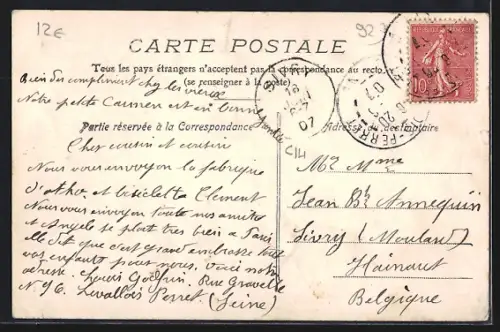 12€
92
CARTE POSTALE
Tous les pays étrangers n'acceptent pas la correspondance au recto
(se renseigner à la poste)
Bien des compliment chez les vieux
Notre petite Carmen est en bonne santée
Partie réservée à la Correspondance
Adresse du destinataire
C14
07
10
PERRET
Cher cousin et cousine
Nous vous envoyon la fabrique
d'autho. et bisicletta Clement
Nous vous envoyon toute nos amitiés
et Angele se plait tres bien a Paris
elle dit que c'est grand embrasse tout
vos enfants pour nous. Voici notre
adresse. Louis Godfrin. Rue Gravelle
N 96. Levallois Perret (Seine)
Mr Mme
Jean Bte Annequin
Sivry (Moulard)
Hainaut
Belgique